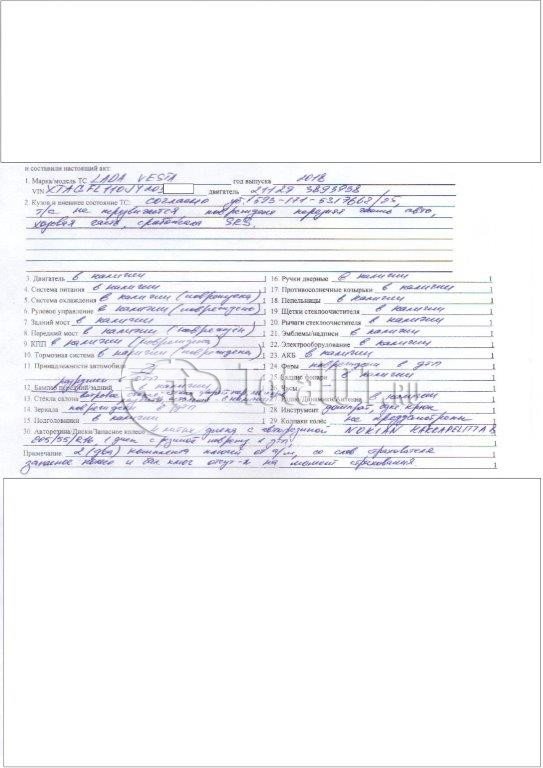 и составили настоящий акт
1. Марка/модель ТС LADA VESTA год выпуска 2018
VIN XTAGFL110JY103 двигатель 21129 3893938
2. Кузов и внешнее состояние ТС: согласно
т/с не передвигается повреждена передняя часть авто,
ходовая часть, сработала SRS.
3. Двигатель в наличии 16. Ручки дверные в наличии
4. Система питания в наличии 17. Противосолнечные козырьки в наличии
5. Система охлаждения в наличии (повреждена) 18. Пепельницы в наличии
6. Рулевое управление в наличии (повреждено) 19. Щетки стеклоочистителя в наличии
7. Задний мост в наличии 20. Рычаги стеклоочистителя в наличии
8. Передний мост в наличии (поврежден) 21. Эмблемы/надписи в наличии
9. КПП в наличии (повреждена) 22. Электрооборудование в наличии
10. Тормозная система в наличии (повреждена) 23. АКБ в наличии
11. Принадлежности автомобиля 24. Фары повреждены в ДТП
12. Бампер передний/задний в наличии 25. Задние фонари в наличии
13. Стекла салона 26. Часы в наличии
14. Зеркала повреждены в ДТП 28. Инструмент домкрат, крюк
15. Подголовники в наличии 29. Колпаки колес не предусмотрены
30. Авторезина/Диски/Запасное колесо литые диски с авторезиной NOKIAN HAKKAPELIITTA 8
205/55/R16 1 диск с резиной поврежд. в ДТП
Примечание 2 (два) комплекта ключей от а/м, со слов страхователя
запасное колесо и бал. ключ отсут-л на момент страхования